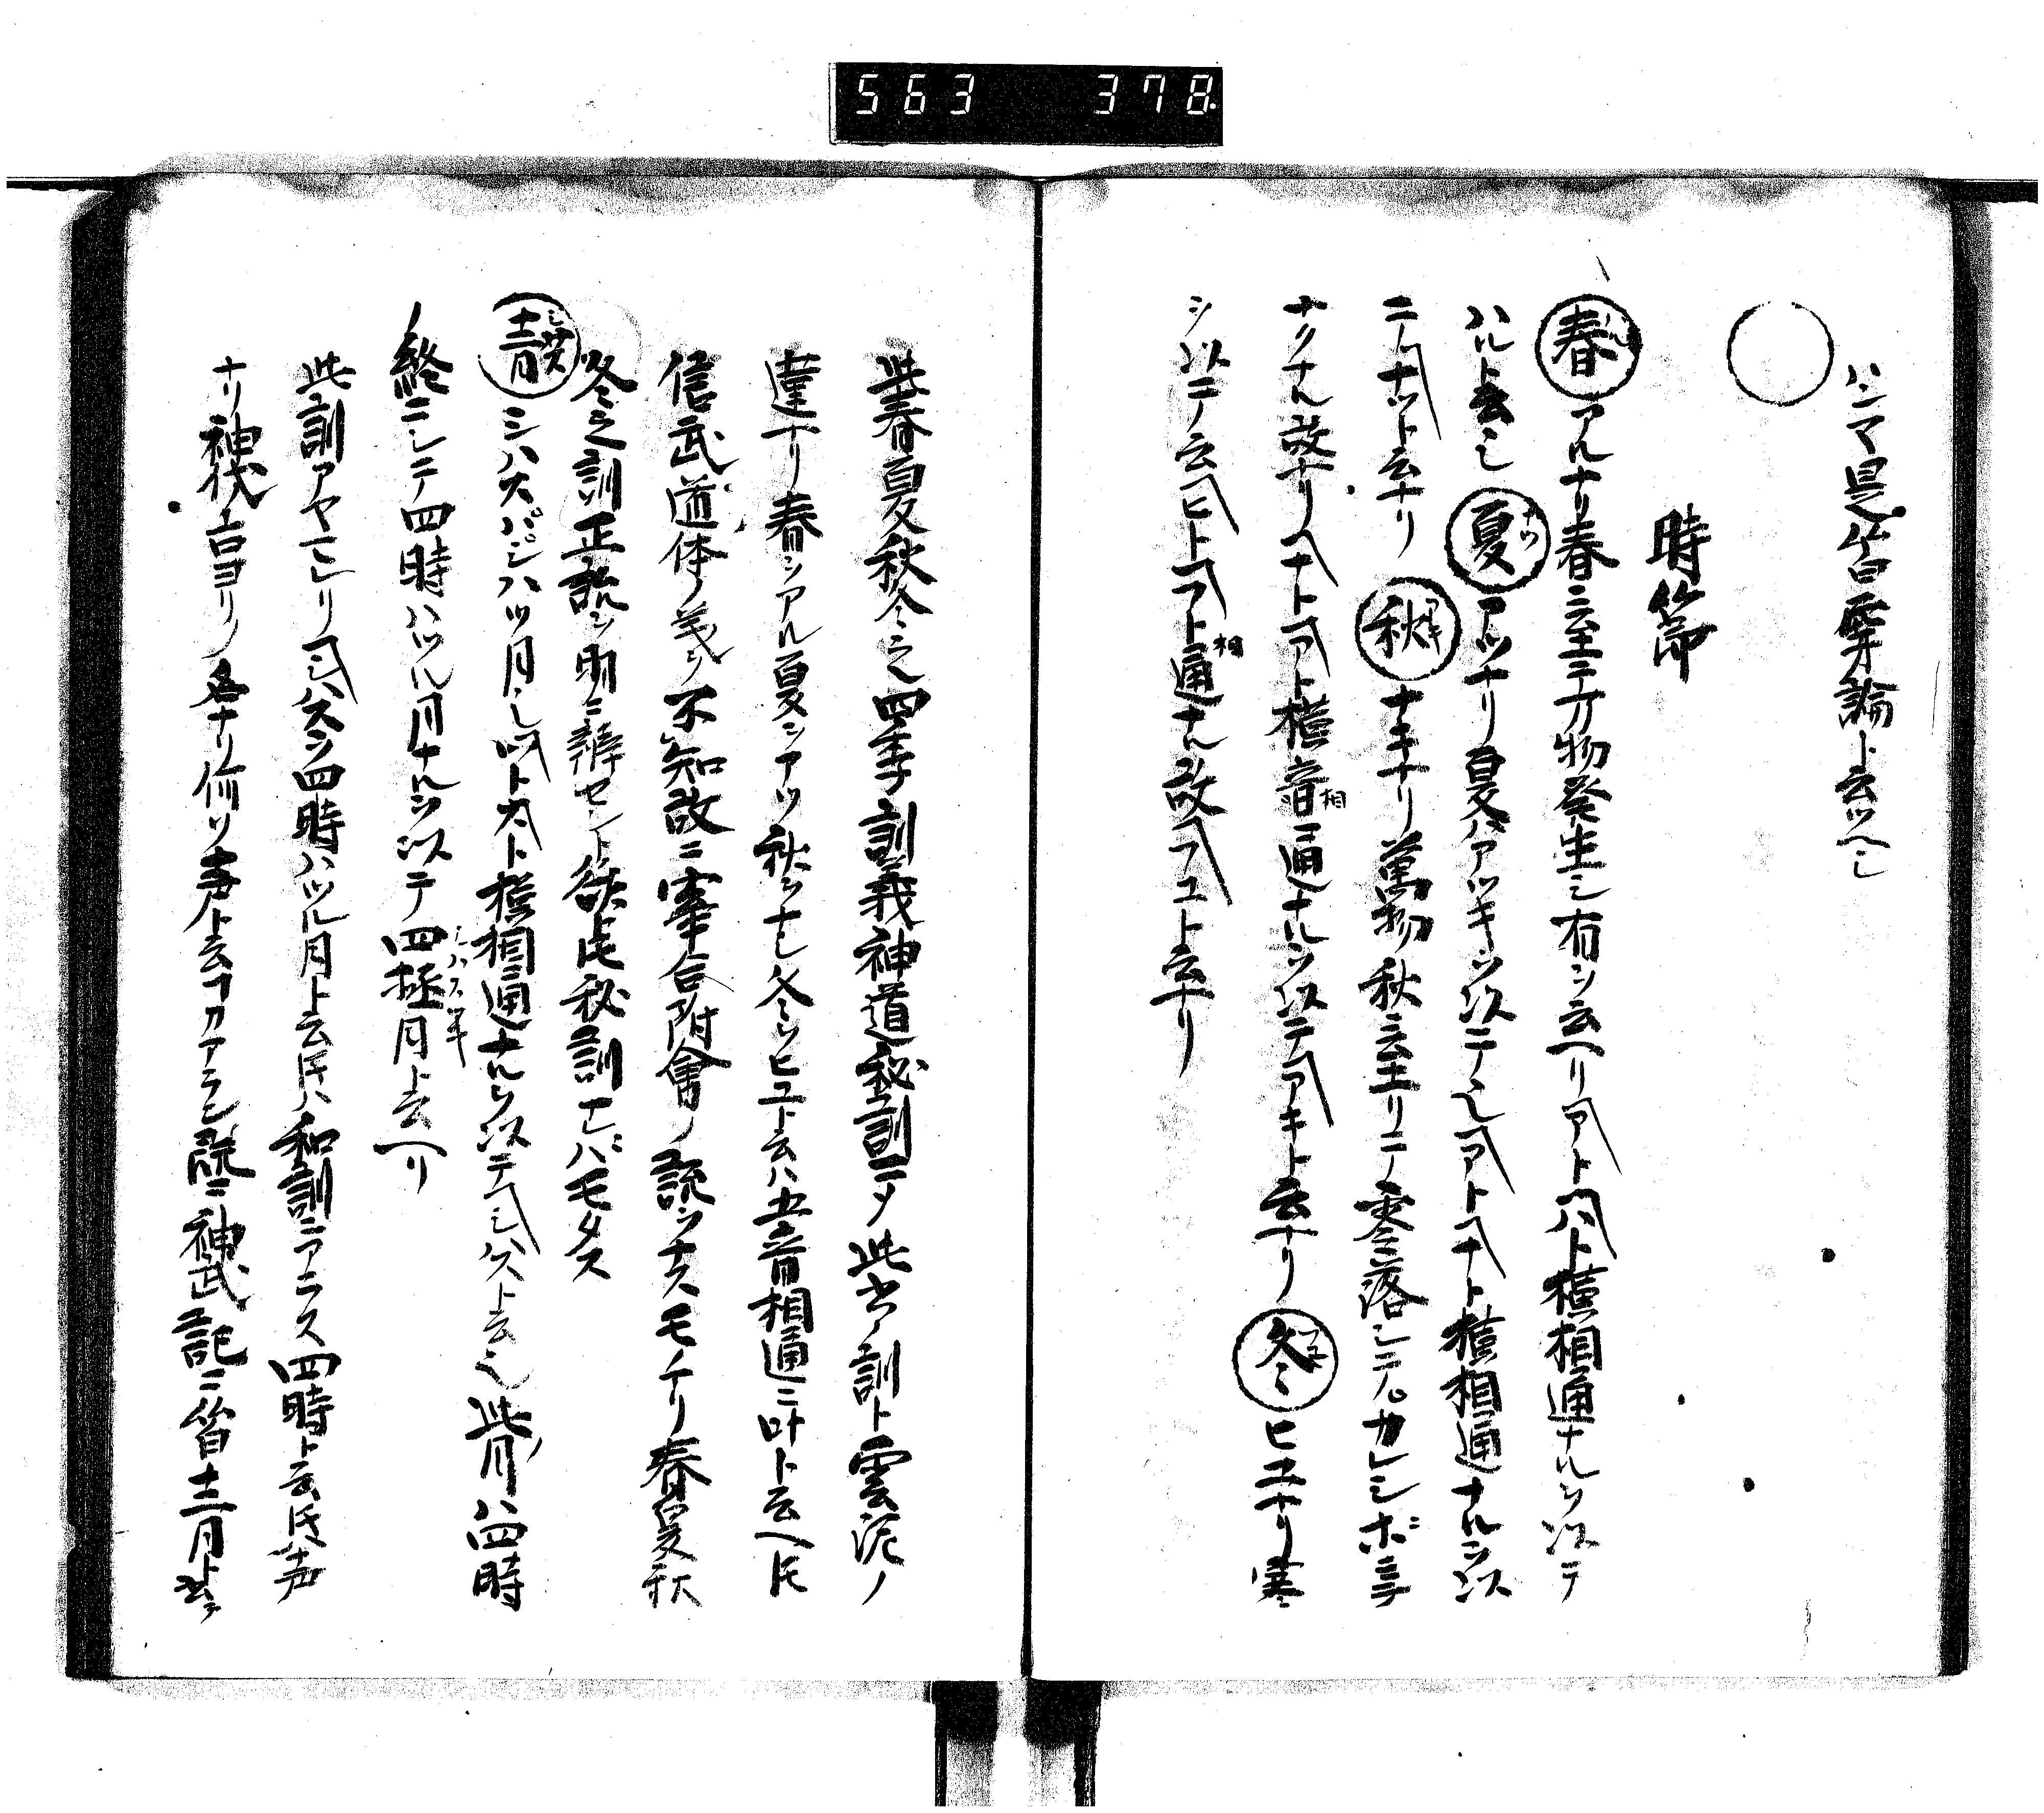 563 378
ハンマ是皆卑論ト云ツヘシ
時節
春アルナリ春ニ至テ万物発生シ有ヲ云ヘリアトハト横相通ナルヲ以テ
ハルト云也夏ナツアツナリ夏ハアツキヲ以テ也アトナト横相通ナルヲ以
テナツト云ナリ秋アキナキナリ萬物秋ニ至リテ零落シテカレシボミテ
ナクナル故ナリナトアト横音相通ナルヲ以テアキト云ナリ冬フユヒユナリ寒
シ以テ云ヒトフト相通ナル故フユト云ナリ
此春夏秋冬之四季訓義神道秘訓ニメ此書ノ訓ト雲泥ノ
違ナリ春ヲアル夏ヲアツ秋ヲナシ冬ヲヒユト云ハ五音相通ニ叶ト云ヘ𪜈
信武道体ノ義ヲ不知故ニ牽合附會ノ説ヲナスモノナリ春夏秋
冬之訓正説ヲ明ニ辨セント欲𪜈秘訓ナレバモタス
十二月シハスシハスバシハツ月也ツトスト横相通ナルヲ以テシハスト云也此月ハ四時
ノ終ニシテ四時ハツル月ナルヲ以テ四極シハスツキ月ト云ヘリ
此訓アヤマレリシハスヲ四時ハツル月ト云𪜈ハ和訓ニアラス四時ト云𪜈声
ナリ神代ヨリノ名ナリ何ソ声ト云フ可アラン既ニ神武記ニ皆十二月